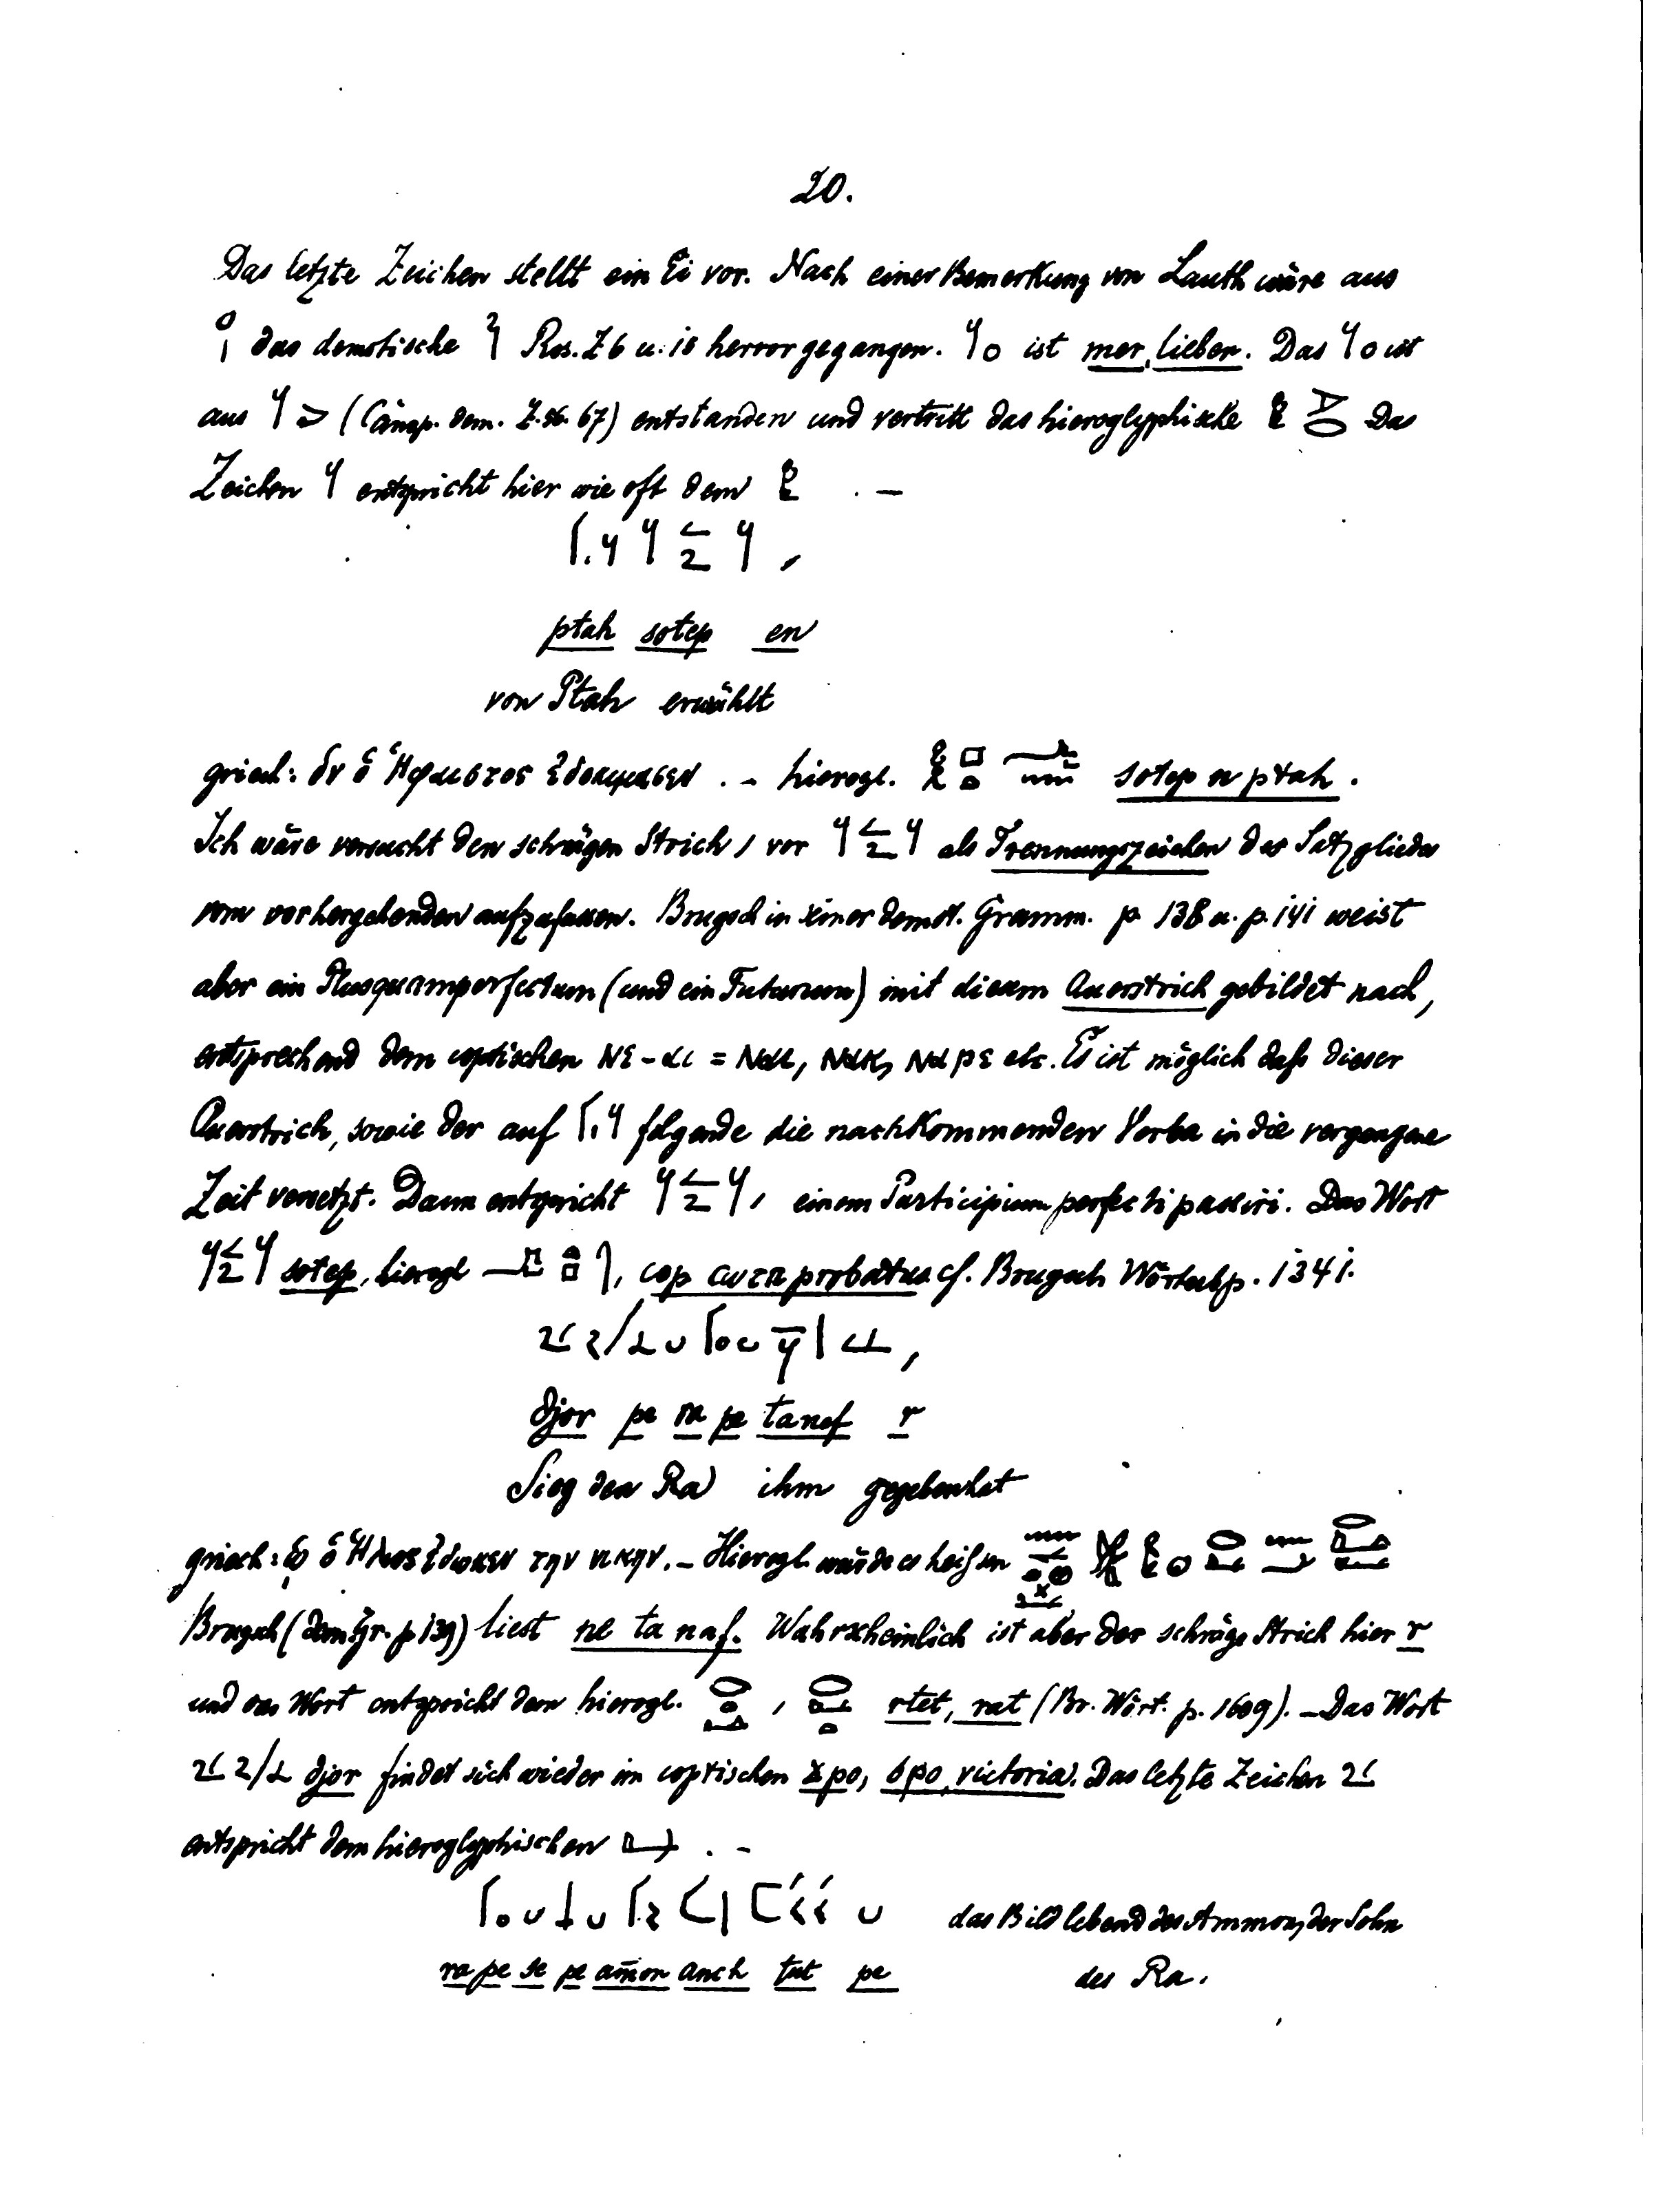 20.
Das letzte Zeichen stellt ein Ei vor. Nach einer Bemerkung von Lauth wäre aus
das demotische Ros. Z 6 u. 18 hervorgegangen. ist mer, lieben. Das ist
aus dem. 67) entstanden und vertritt das hieroglyphische Das
Zeichen entspricht hier wie oft dem . –
ptah sotep en
von Ptah erwählt
griech: ὃν ὁ Ἥφαιστος ἐδοκιμασεν . – hierogl. sotep n ptah.
Ich wäre versucht den schrägen Strich / vor als Trennungszeichen des Satzgliedes
vom vorhergehenden aufzufassen. Brugsch in seiner demot. Gramm. p 138 u. p. 141 weist
aber ein Plusquamperfectum (und ein Futurum) mit diesem Querstrich gebildet nach,
entsprechend dem coptischen ⲛⲉ-ⲁⲓ = ⲛⲁⲓ, ⲛⲁⲕ, ⲛⲁⲣⲉ etc. Es ist möglich daß dieser
Querstrich, sowie der auf folgende die nachkommenden Verba in die vergangene
Zeit versetzt. Dann entspricht einem Participium perfecti passivi. Das Wort
sotep, hierogl , cop ⲥⲱⲧⲡ probatus cf. Brugsch Wörterb p. 1341.
djor pe ra pe tanef r
Sieg den Ra ihm gegeben hat
griech: ᾧ ὁ Ἥλιος ἔδωκεν την νικην. – Hierogl. würde es heißen
Brugsch (dem Gr. p 139) liest ne ta naf. Wahrscheinlich ist aber der schräge Strich hier r
und das Wort entspricht dem hierogl. , rtet, rat (Br. Wört. p. 1609). – Das Wort
djor findet sich wieder im coptischen ϫⲣⲟ, ϭⲣⲟ, victoria. Das letzte Zeichen
entspricht dem hieroglyphischen . –
das Bild lebend des Ammon, der Sohn
ra pe se pe amon anch tut pe des Ra.